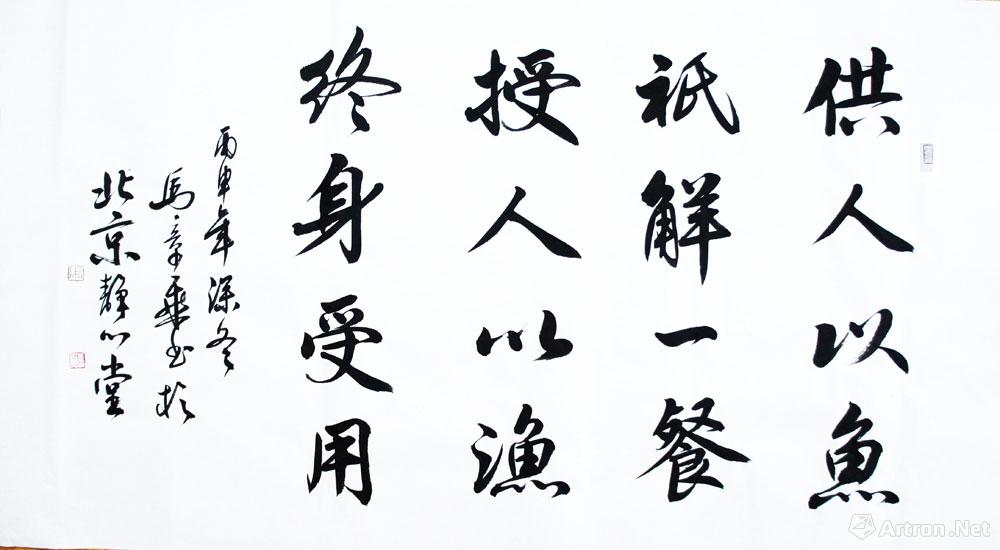 供人以魚
衹解一餐
授人以漁
終身受用
丙申年深冬
馬章乘书於
北京靜心堂
Artron.Net